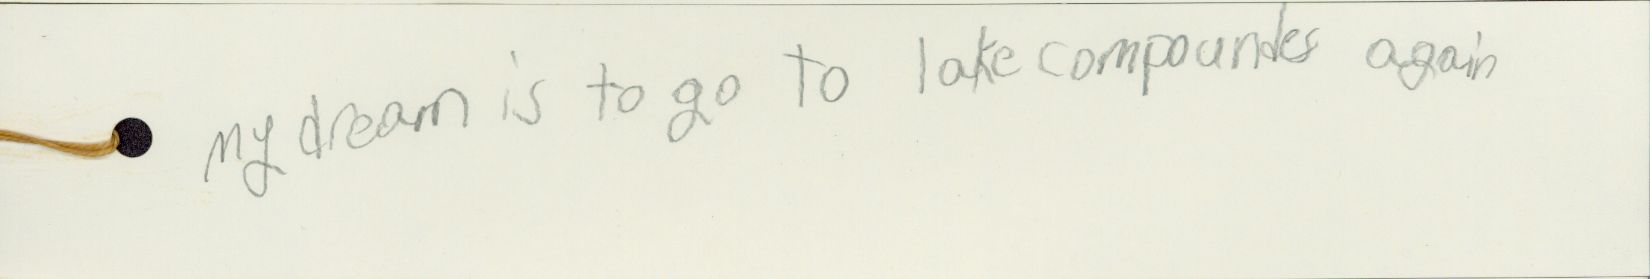 my dream is to go to lake compoundes again